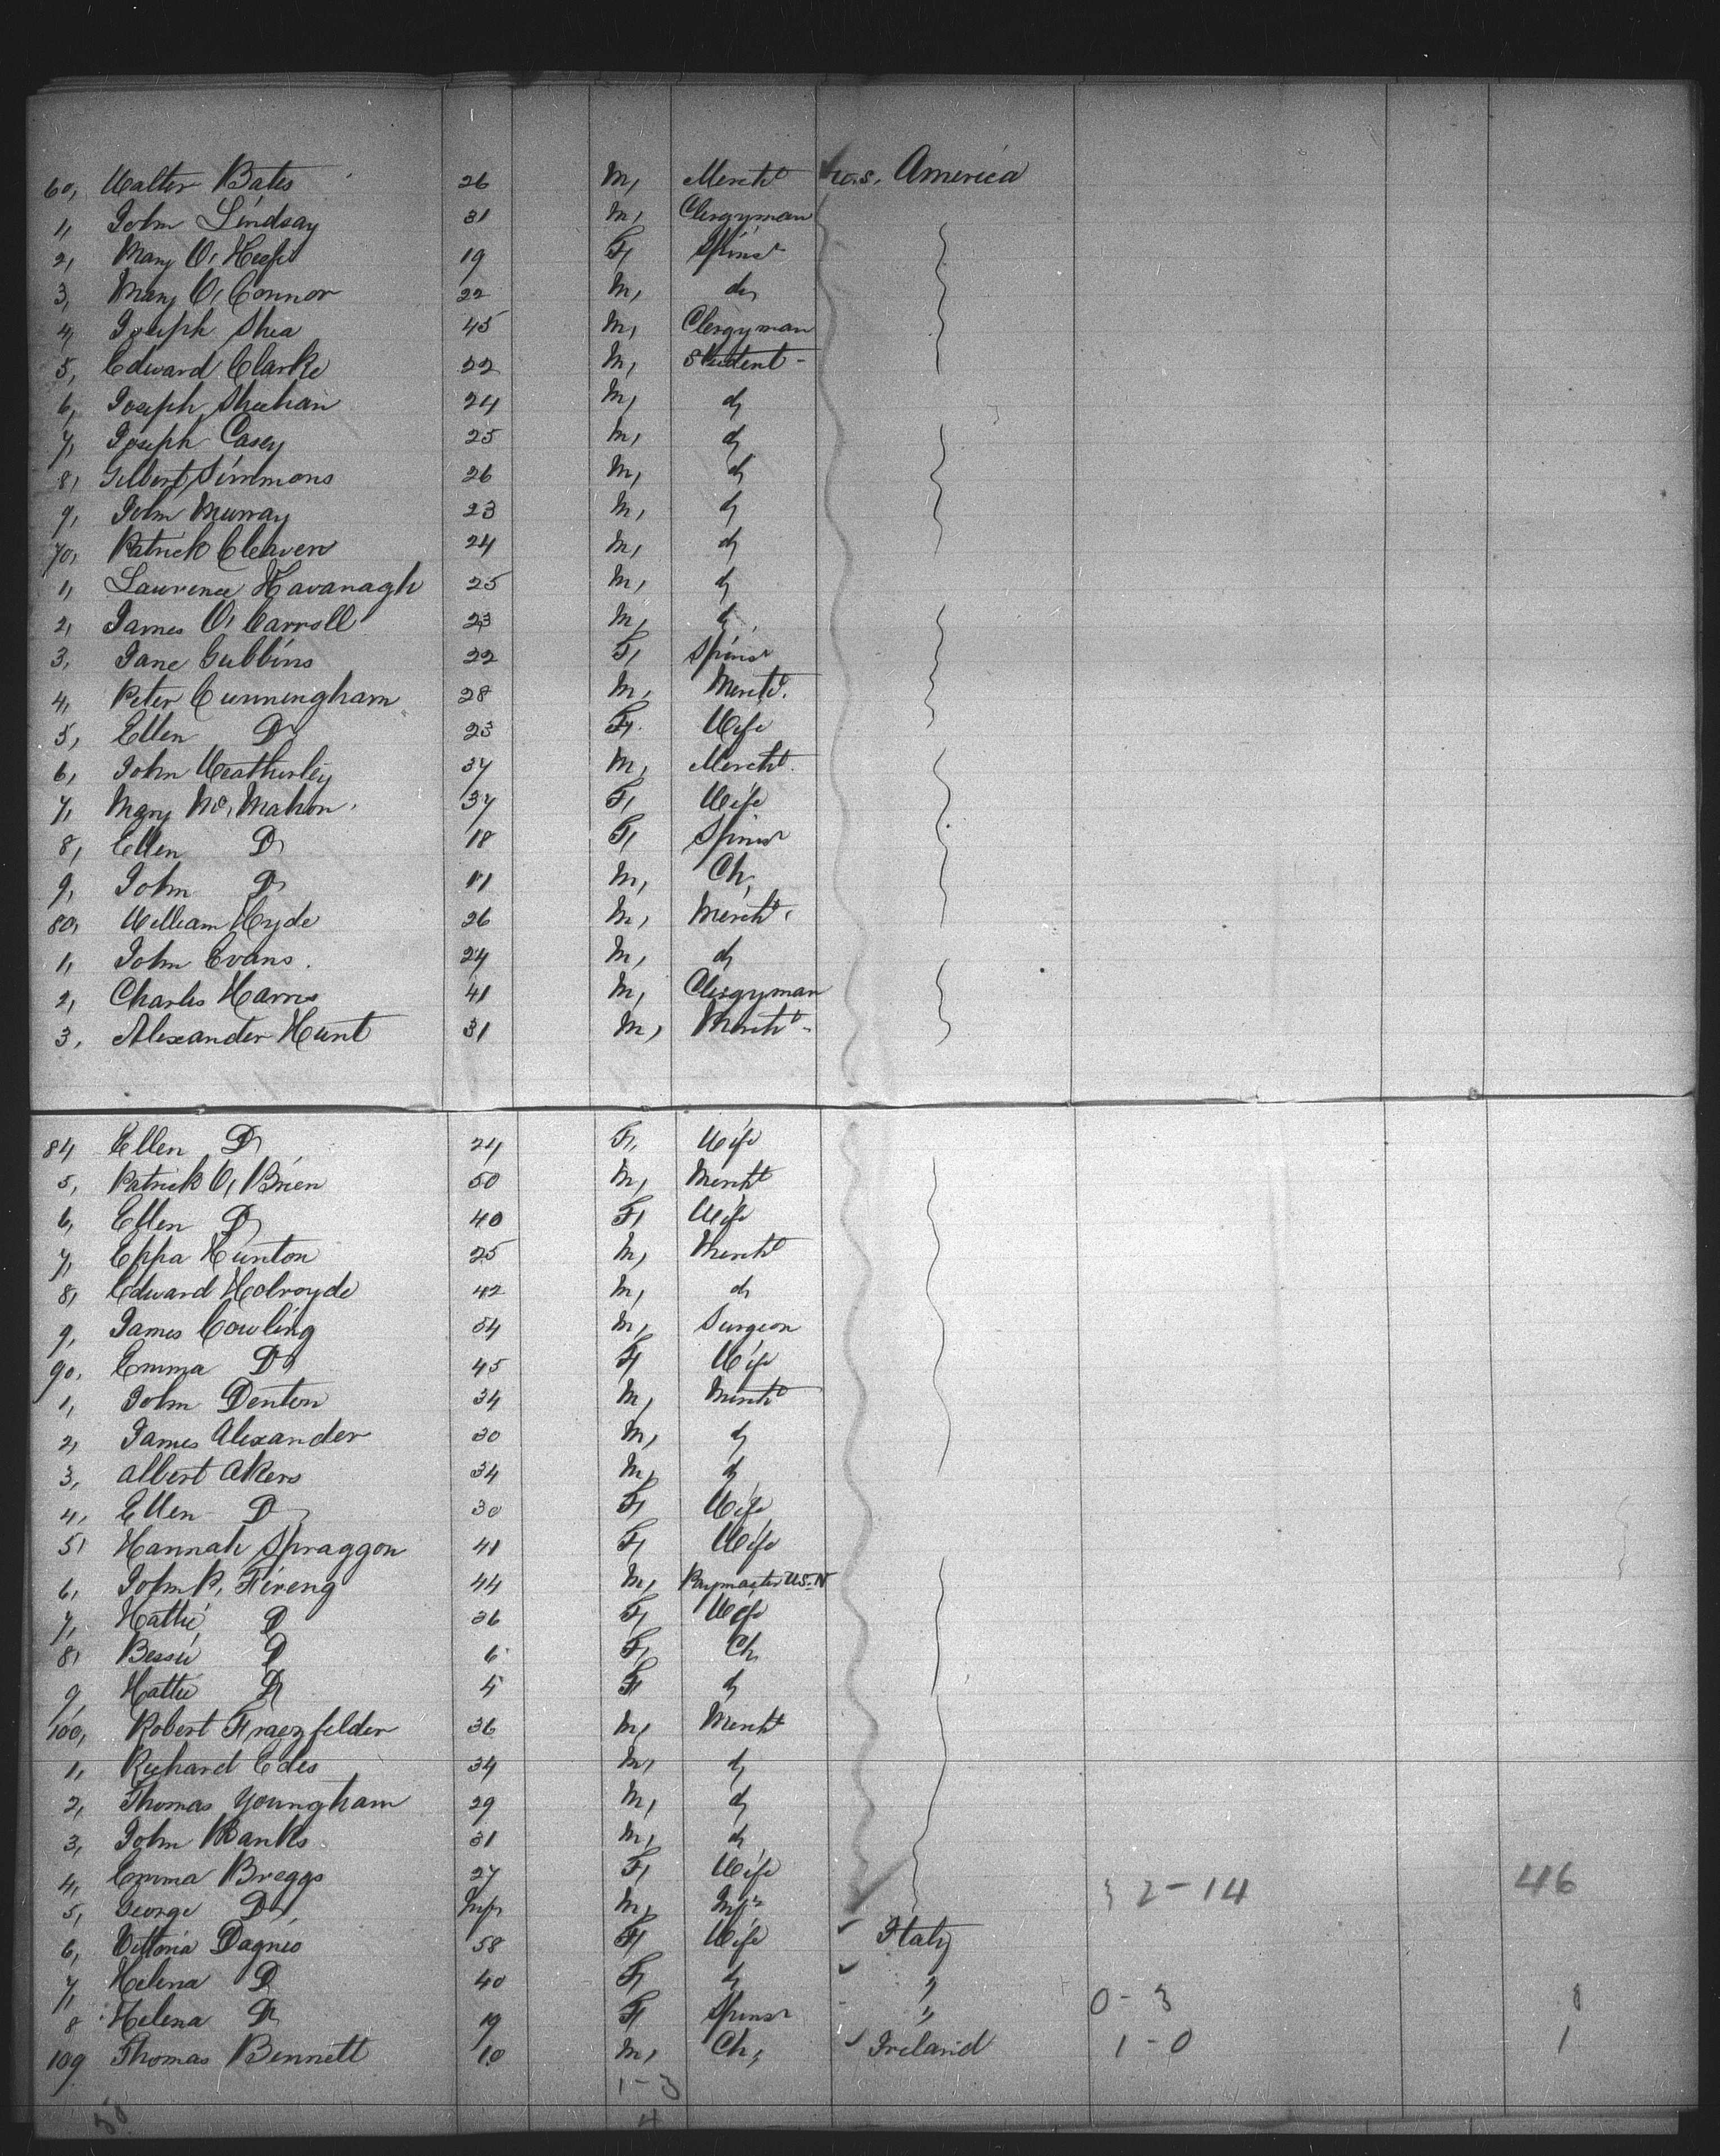 60, Walter Bates 26 M, Mercht U.S. America
1, John Lindsay 31 M, Clergyman
2, Mary O, 19 F, Spinsr
3, Mary O, Connor 22 M, do
4, Joseph Shea 45 M, Clergyman
5, Edward Clarke 22 M, Student -
6, Joseph Sheehan 24 M, do
7, Joseph Casey 25 M, do
8, Gilbert Simmons 26 M, do
9, John Murray 23 M, do
70, Patrick Cleaven 24 M, do
1, Laurence Kavanagh 25 M, do
2, James O, Carroll 23 M, do
3, Jane Gubbins 22 F, Spinsr
4, Peter Cunningham 28 M, Mercht.
5, Ellen Do 23 F. Wife
6, John Weatherley 37 M, Mercht.
7, Mary Mc, Mahon. 37 F, Wife
8, Ellen Do 18 F, Spinsr
9, John Do 11 M, Ch,
80, William Hyde 26 M, Mercht,
1, John Evans. 24 M, do
2, Charles Harris 41 M, Clergyman
3, Alexander Hunt 31 M, Mercht -
84 Ellen Do 24 F, Wife
5, Patrick O, Brien 50 M, Mercht
6, Ellen Do 40 F, Wife
7, Eppa Hunton 25 M, Mercht
8, Edward Holroyde 42 M, do
9, James Cowling 54 M, Surgeon
90, Emma Do 45 F, Wife
1, John Denton 34 M, Mercht
2, James Alexander 30 M, do
3, Albert Akers 34 M, do
4, Ellen Do 30 F, Wife
5, Hannah Spraggon 41 F, Wife
6, John P, 44 M, Paymaster U.S.N
7, Hattie, Do 36 F, Wife
8, Bessie Do 6 F, Ch,
9, Hattie Do 5 F, do
100, Robert 36 M, Mercht
1, Richard Edes 34 M, do
2, Thomas Youngham 29 M, do
3, John Banks 31 M, do
4, Emma Breggs 27 F, Wife 32-14 46
5, George Do Inft M, Inft
6, Vittoria Dagnio 58 F, Wife Italy
7, Helena Do 40 F, do "
8 Helena Do 19 F, Spinsr " 0-3
109 Thomas Bennett 10 M, Ch, Ireland 1-0 1
1-3
50 4